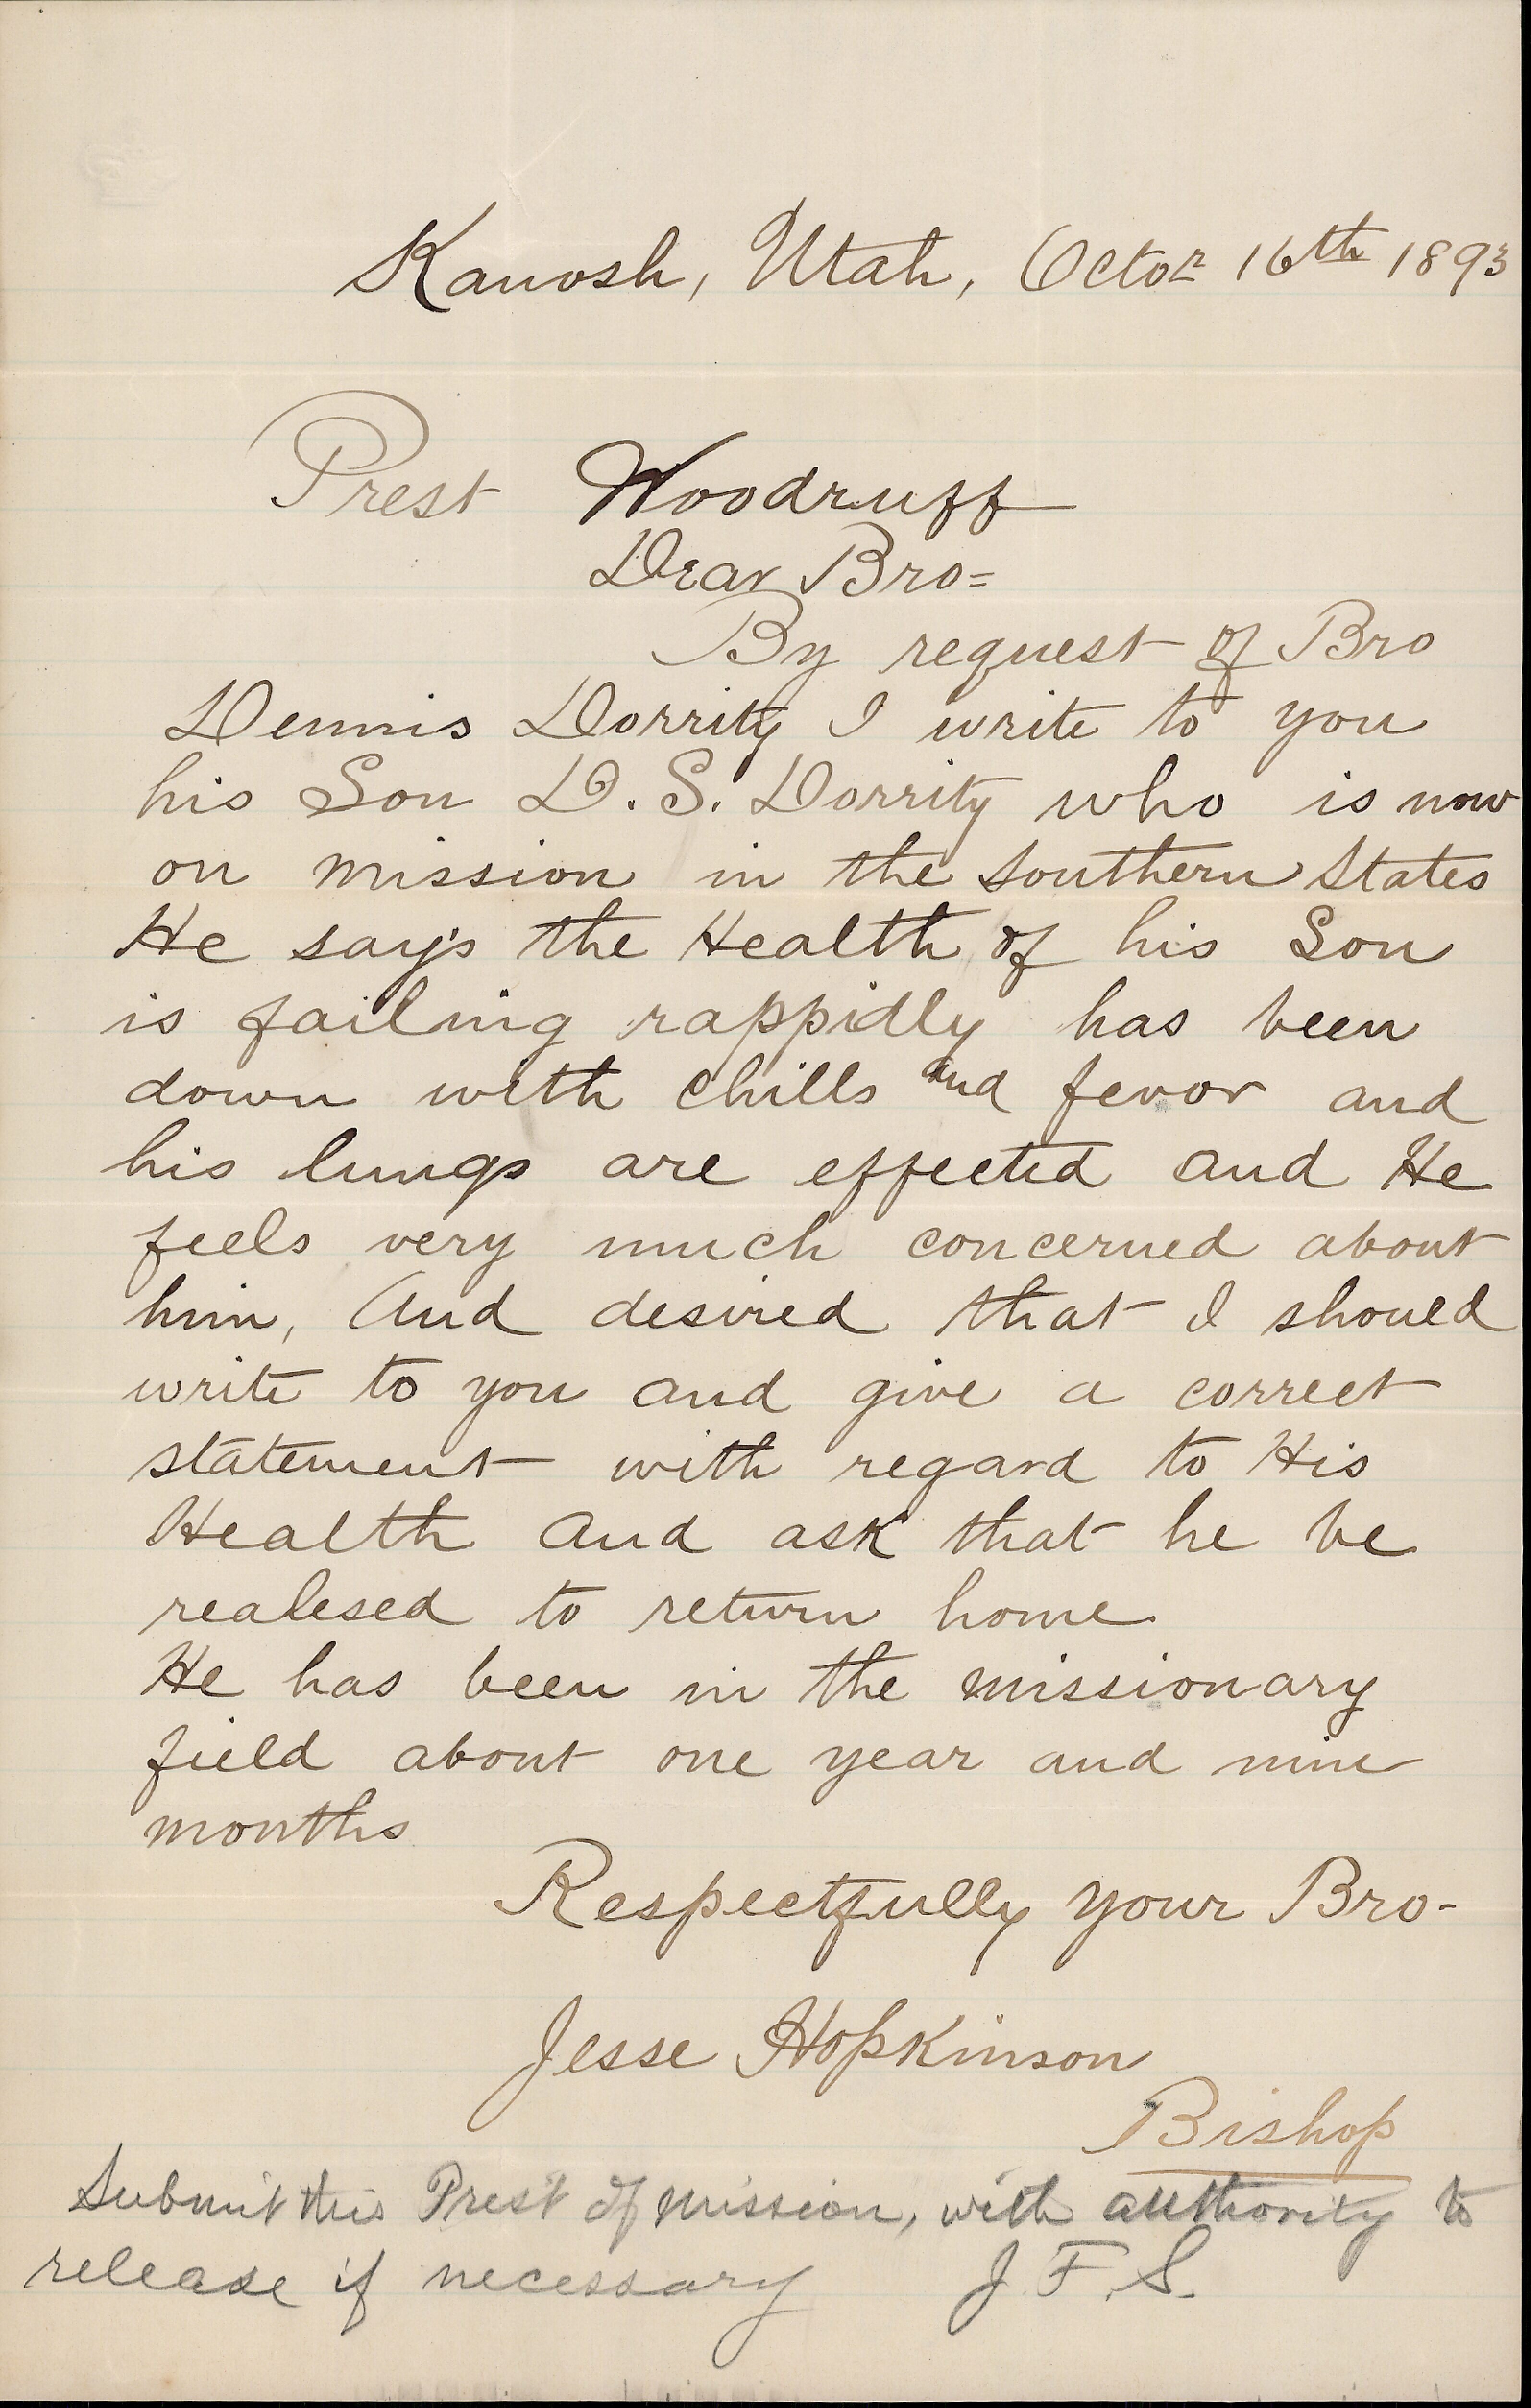 Kanosh, Utah, Octor 16th 1893
Prest Woodruff
Dear Bro=
By request of Bro
Dennis Dorrity I write to you
his Son D. S. Dorrity who is now
on mission in the Southern States
He says the Health of his Son
is failing rappidly has been
down with chills and fevor and
his lungs are effected and He
feels very much concerned about
him, And desired that I should
write to you and give a correct
statement with regard to His
Health And ask that he be
realesed to return home
He has been in the missionary
field about one year and nine
months
Respectfully your Bro-
Jesse Hopkinson
Bishop
Submit this Prest of mission, with authority to
release if necessary J. F. S.